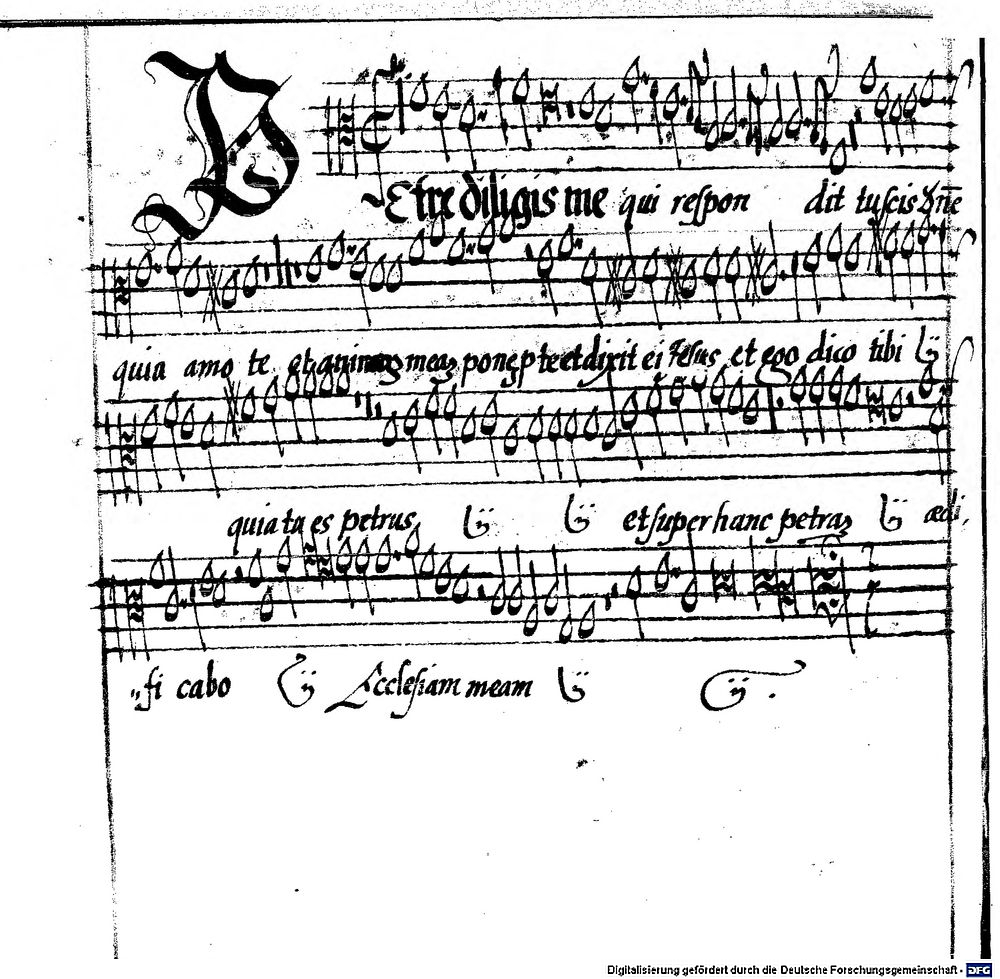 PEtre diligis me qui respon dit tu scis Dñe
quia amo te et animaʒ meaʒ ponē p te et dixit ei Jesus et ego dico tibi ij
quia tu es petrus ij ij et super hanc petraʒ ij ædi,
fi cabo ij Ecclesiam meam ij ij.
Digitalisierung gefördert durch die Deutsche Forschungsgemeinschaft - DFG